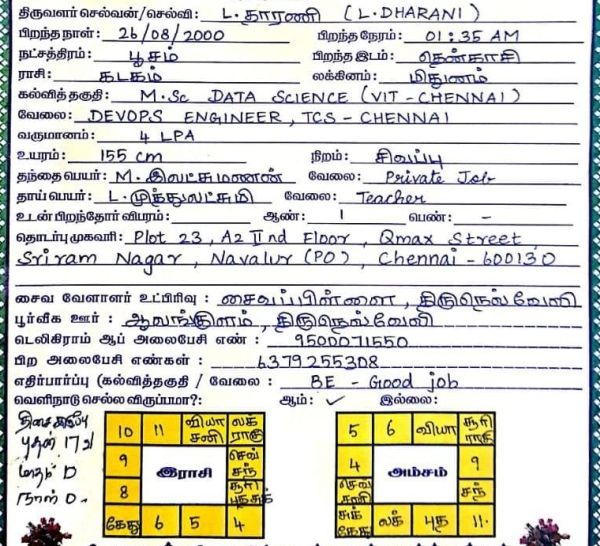 திருவளர் செல்வன்/செல்வி: L. தாரணி (L. DHARANI)
பிறந்த நாள்: 26/08/2000 பிறந்த நேரம்: 01:35 AM
நட்சத்திரம்: பூசம் பிறந்த இடம்: தென்காசி
ராசி: கடகம் லக்கினம்: மிதுனம்
கல்வித்தகுதி: M.Sc DATA SCIENCE (VIT - CHENNAI)
வேலை: DEVOPS ENGINEER, TCS - CHENNAI
வருமானம்: 4 LPA
உயரம்: 155 cm நிறம்: சிவப்பு
தந்தை பெயர்: M. இலட்சுமணன் வேலை: Private Job
தாய் பெயர்: L. முத்துலட்சுமி வேலை: Teacher
உடன் பிறந்தோர் விபரம்: ஆண்: 1 பெண்: -
தொடர்பு முகவரி: Plot 23, A2 IInd Floor, Qmax Street,
Sri ram Nagar, Navalur (PO), Chennai - 600130
சைவ வேளாளர் உட்பிரிவு: சைவப்பிள்ளை, திருநெல்வேலி
பூர்வீக ஊர்: ஆலங்குளம், திருநெல்வேலி
டெலிகிராம் ஆப் அலைபேசி எண்: 9500071550
பிற அலைபேசி எண்கள்: 6379255308
எதிர்பார்ப்பு (கல்வித்தகுதி / வேலை: BE - Good job
வெளிநாடு செல்ல விருப்பமா?: ஆம்: ✓ இல்லை:
திசை இருப்பு
புதன் 17 வ
மாதம் 0
நாள் 0
10 11 வியா சனி லக் ராகு
9 இராசி செவ் சந்
8 சூரி புத சுக்
கேது 6 5 4
5 6 வியா சூரி ராகு
4 அம்சம் 9
செவ் சனி சந்
சுக் கேது லக் புத 11